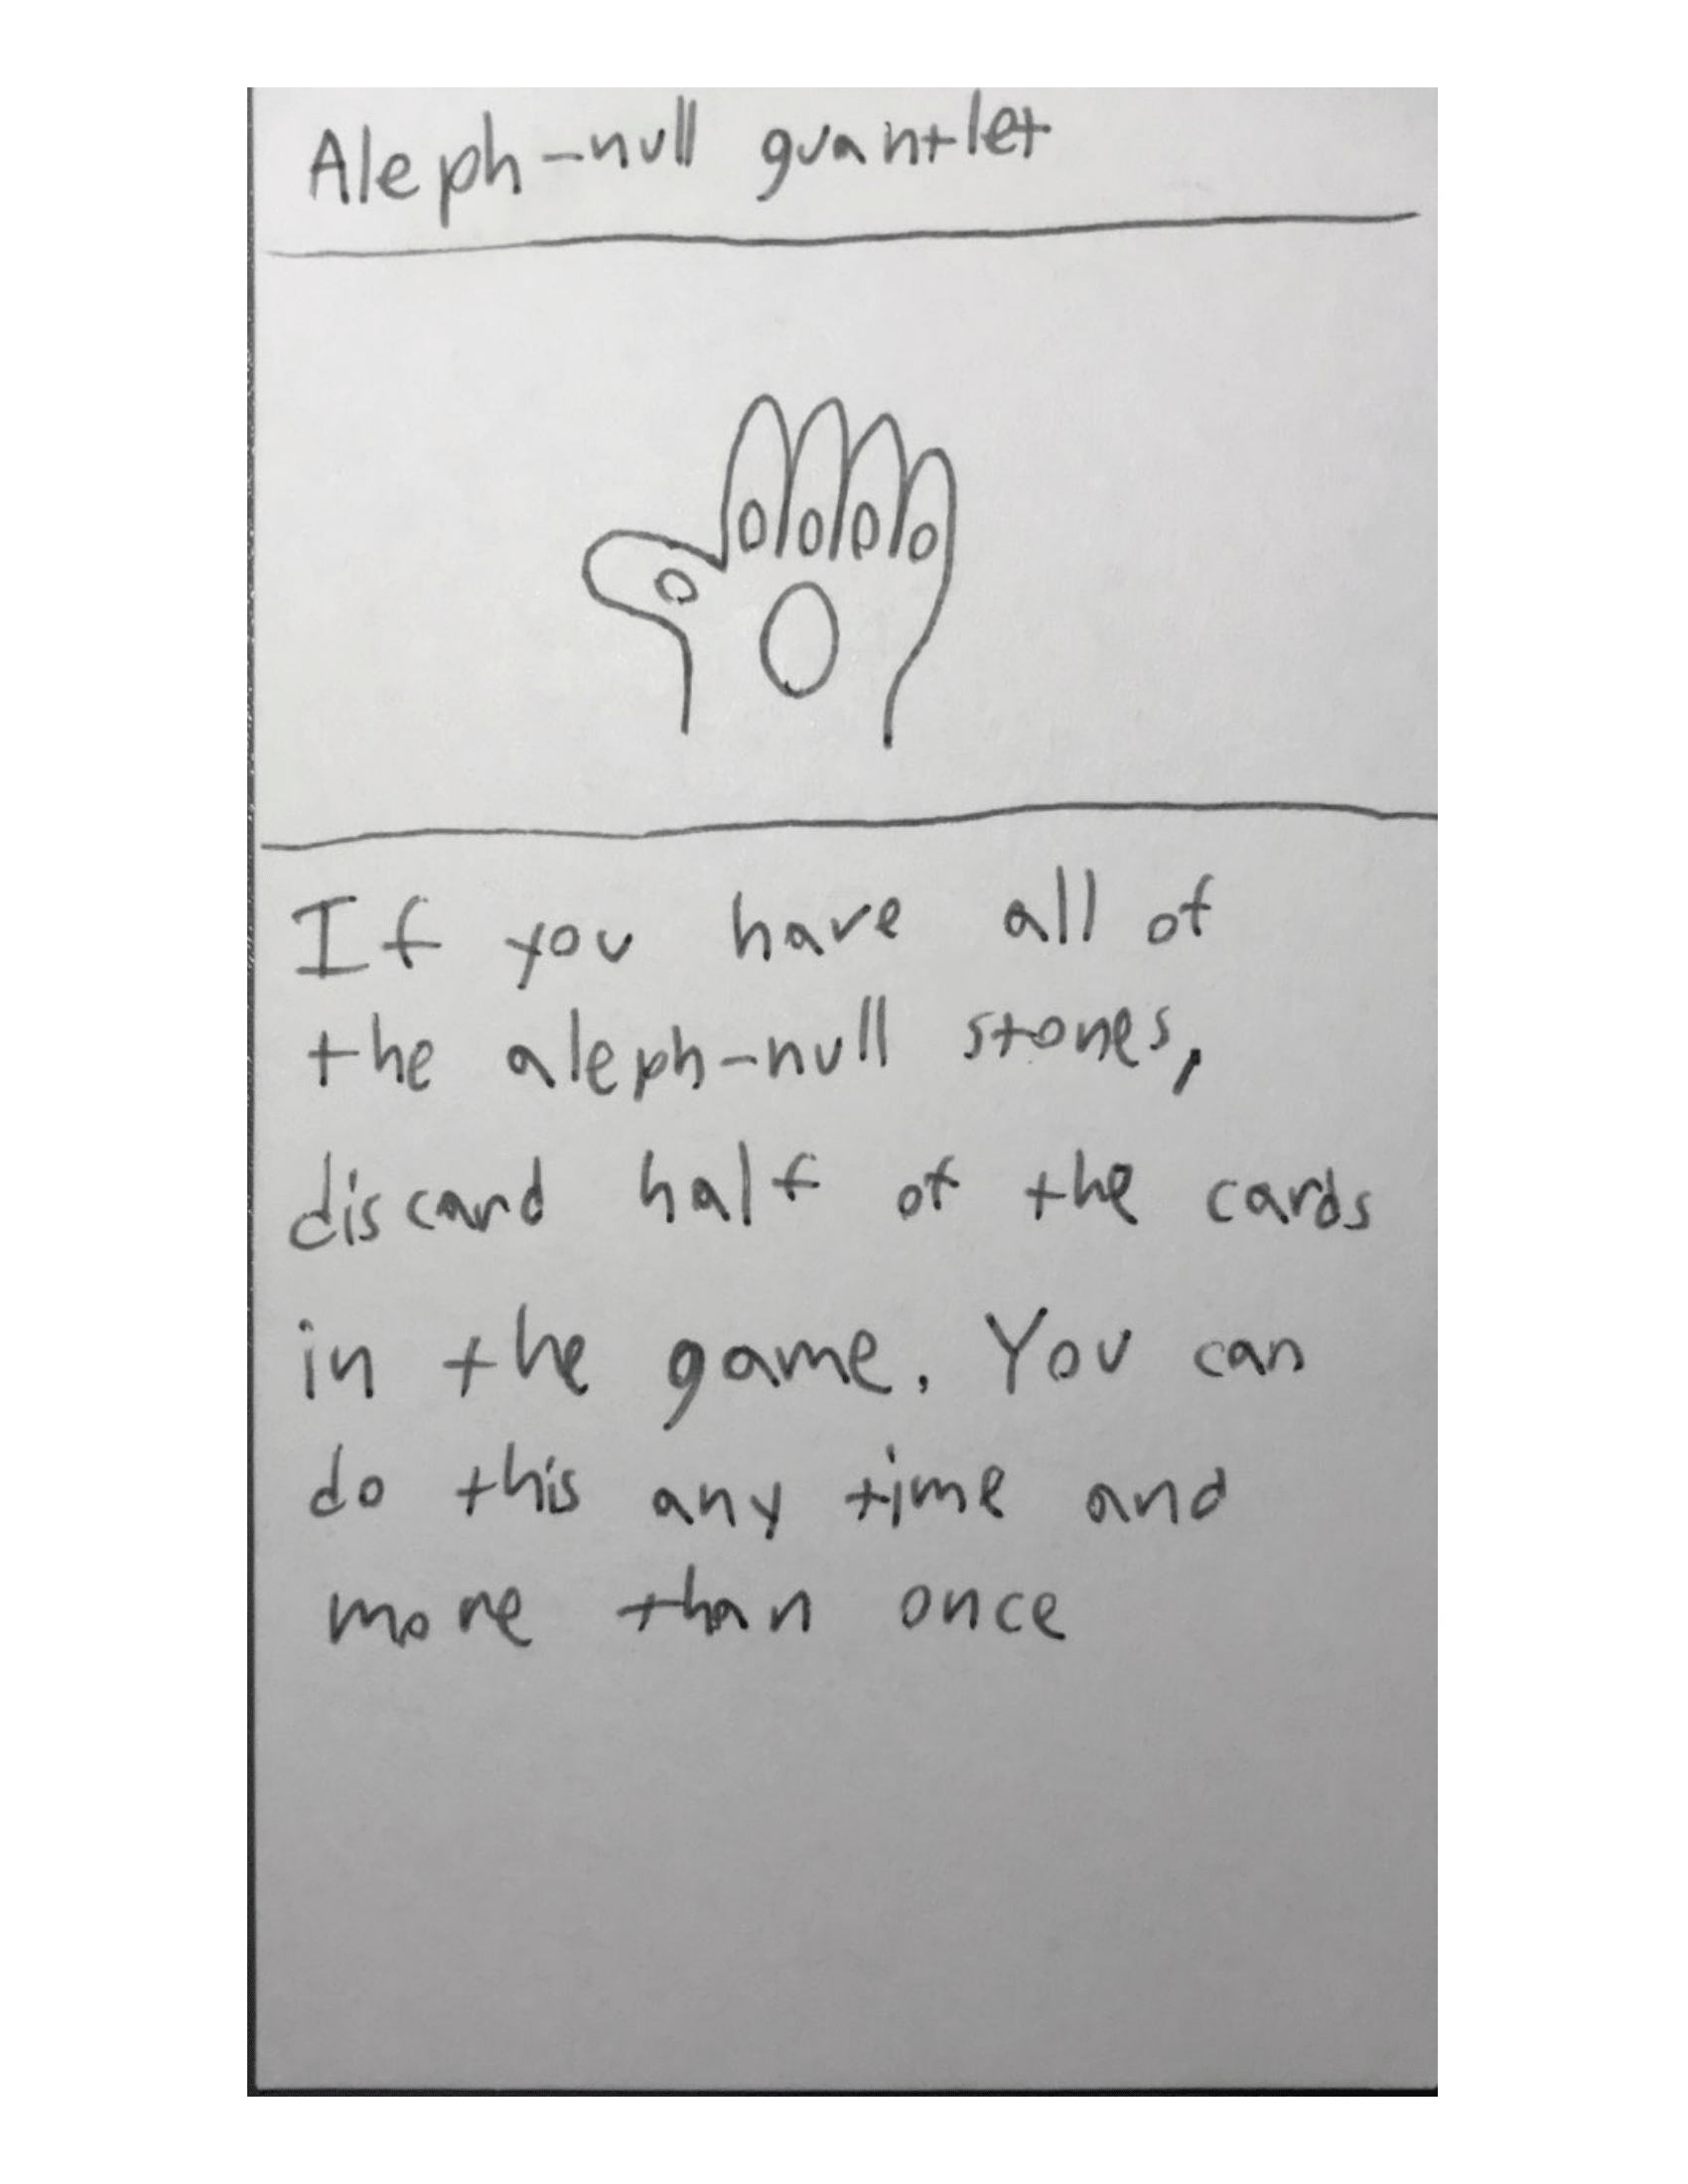 Aleph-null guantlet
If you have all of
the aleph-null stones,
discard half of the cards
in the game. You can
do this any time and
more than once